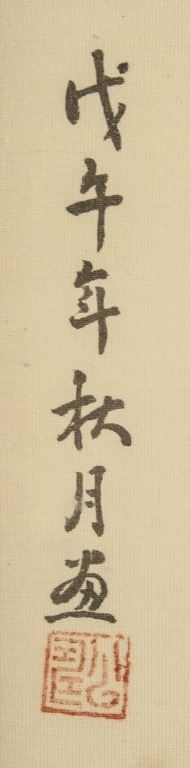 戊午年秋月画